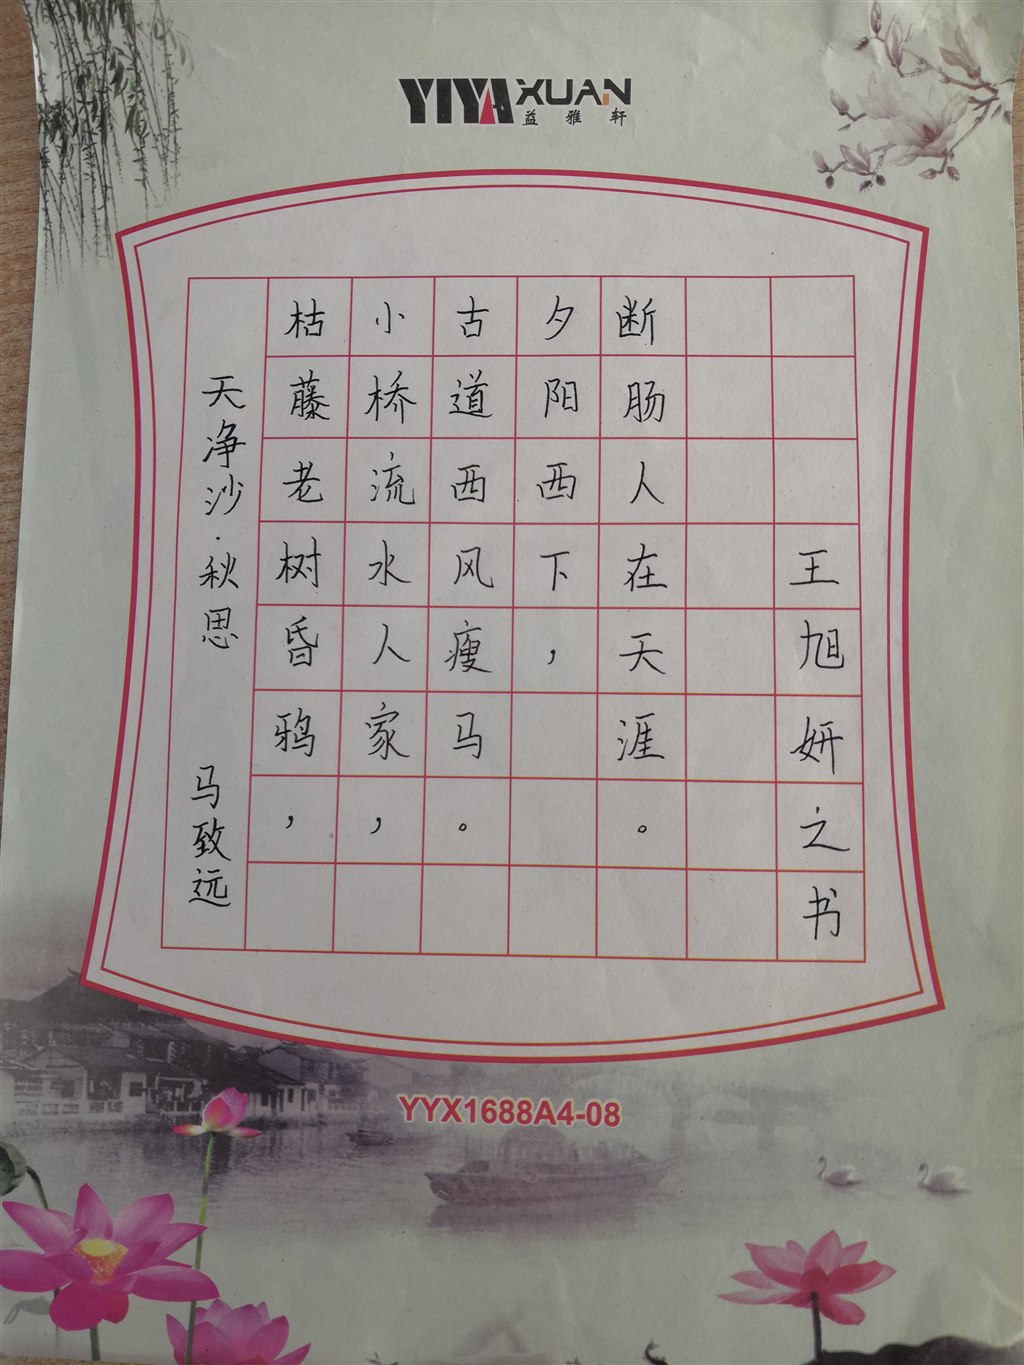 YIYA XUAN
益雅轩
天净沙·秋思 马致远
枯藤老树昏鸦，
小桥流水人家，
古道西风瘦马。
夕阳西下，
断肠人在天涯。
王旭妍之书
YYX1688A4-08